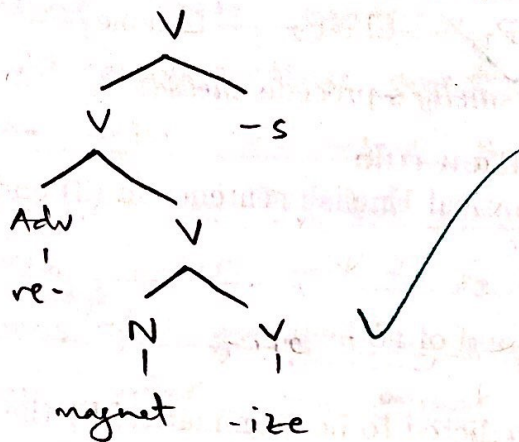 V
V -s
Adv V
re- N V
magnet -ize